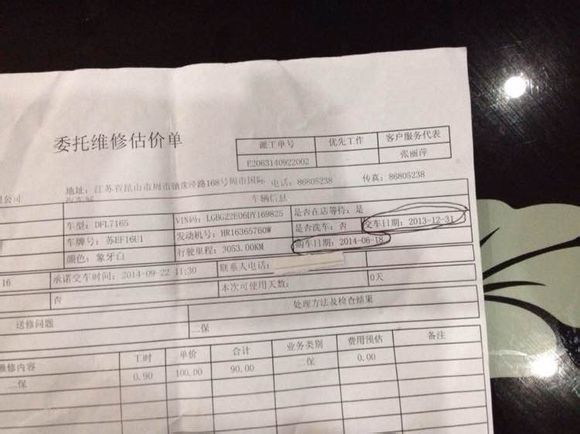 委托维修估价单
派工单号 优先工作 客户服务代表
E2063140922002 张丽萍
地址:江苏省昆山市周市镇 168号周市国际 电话:86805238 传真:86805238
公司 车辆信息
车型:DFL7165 VIN码:LGBG22E06DY169825 是否在店等待:是
车牌号:苏EF16U1 发动机号:HR16365760W 是否洗车:否 交车日期:2013-12-31
颜色:象牙白 行驶里程:3053.00KM 购车日期:2014-06-18
16 承诺交车时间:2014-09-22 11:30 联系人电话:
否 本次可使用天数: 0天
送修问题 处理方法及检查结果
二保
维修内容 工时 单价 合计 业务类别 费用预估 备注
二保 0.90 100.00 90.00 二保 0.00